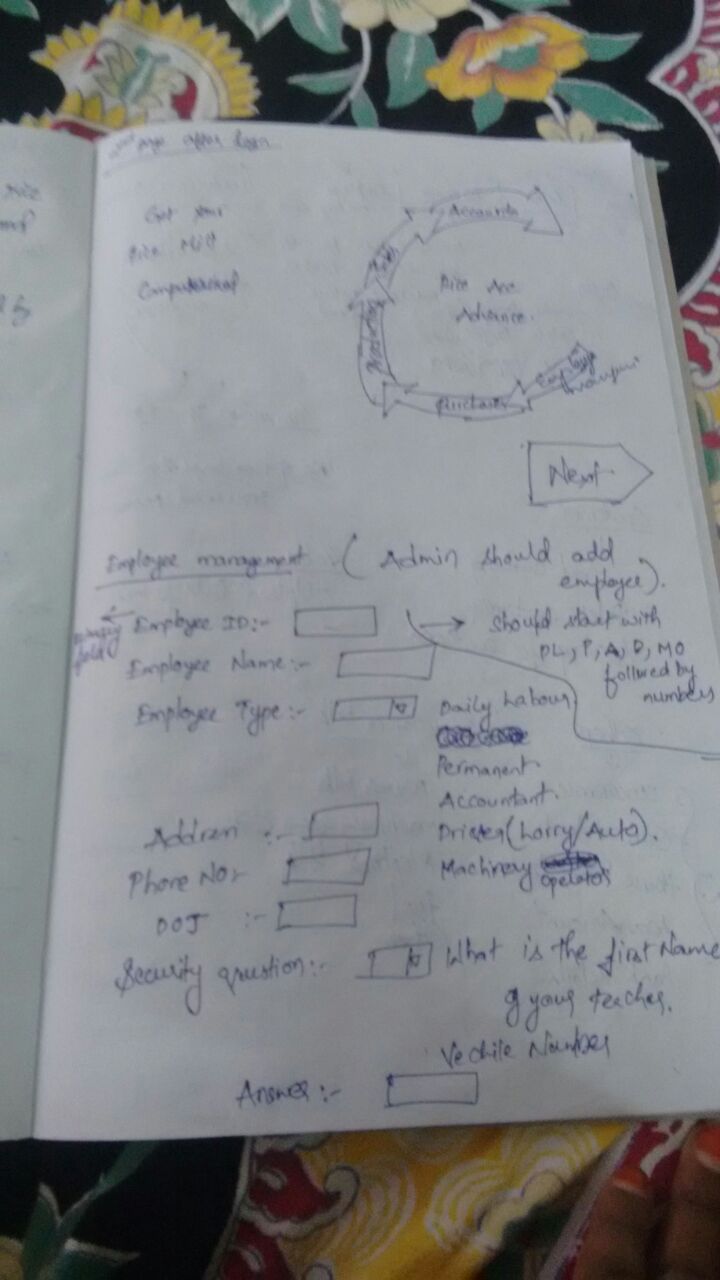 page after login
Get your
Rice Mill
Computerised
Accounts
Sales
Production
Purchases
Employee
Rice Are
Advance.
Next
Employee management (Admin should add
employee).
Employee ID:- → should start with
DL, P, A, D, MO
follured by
numbers
field
Employee Name:-
Employee Type:- Daily Labour
Permanent
Accountant.
Driver (Lorry/Auto).
Machinery operator
Address :-
Phone No:-
DOJ :-
Security question:- What is the first Name
of your teacher.
Vechile Number
Answer:-